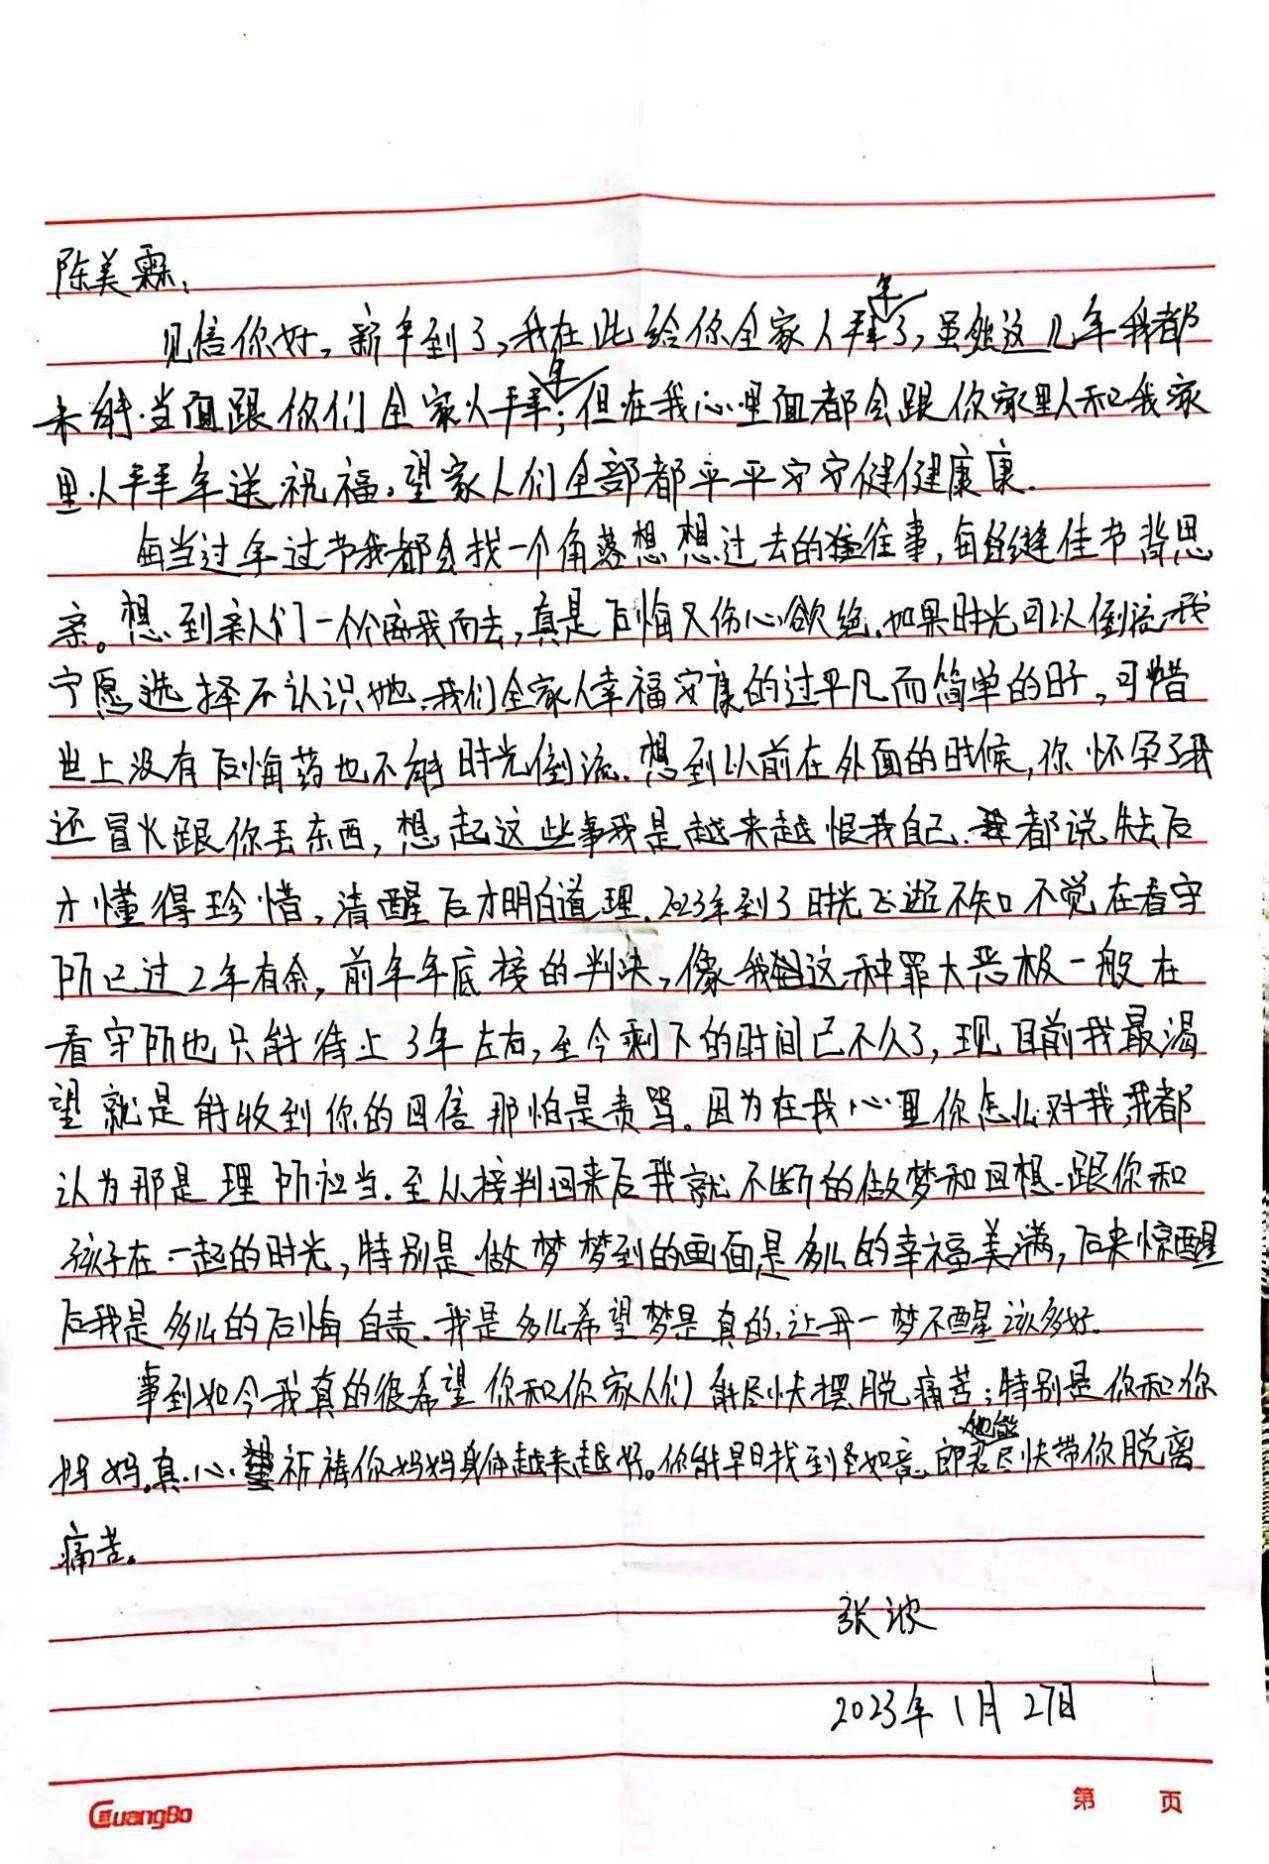 陈美霖：
见信你好，新年到了，我在此给你全家人拜年了，虽然这几年我都
未能当面跟你们全家人拜年；但在我心里面都会跟你家里人和我家
里人拜年送祝福。望家人们全部都平平安安健健康康.
每当过年过节我都会找一个角落想想过去的往事，每缝佳节背思
亲。想到亲人们一个个离我而去，真是后悔又伤心欲绝.如果时光可以倒流我
宁愿选择不认识她.我们全家人幸福安康的过平凡而简单的日子，可惜
世上没有后悔药也不能时光倒流.想到以前在外面的时候，你怀孕了我
还冒火跟你丢东西，想起这些事我是越来越恨我自己.都说失去后
才懂得珍惜，清醒后才明白道理.2023年到了时光飞逝不知不觉在看守
所已过2年有余，前年年底接的判决，像我这种罪大恶极一般在
看守所也只能待上3年左右，至今剩下的时间已不久了，现目前我最渴
望就是能收到你的回信那怕是责骂。因为在我心里你怎么对我，我都
认为那是理所应当.至从接判回来后我就不断的做梦和回想跟你和
孩子在一起的时光，特别是做梦梦到的画面是多么的幸福美满，后来惊醒
后我是多么的后悔自责.我是多么希望梦是真的，让一梦不醒该多好.
事到如今我真的很希望你和你家人们能尽快摆脱痛苦；特别是你和你
妈妈.真心祈祷你妈妈身体越来越好。你能早日找到如意郎君他能尽快带你脱离
痛苦。
张波
2023年1月27日
GuangBo
第 页